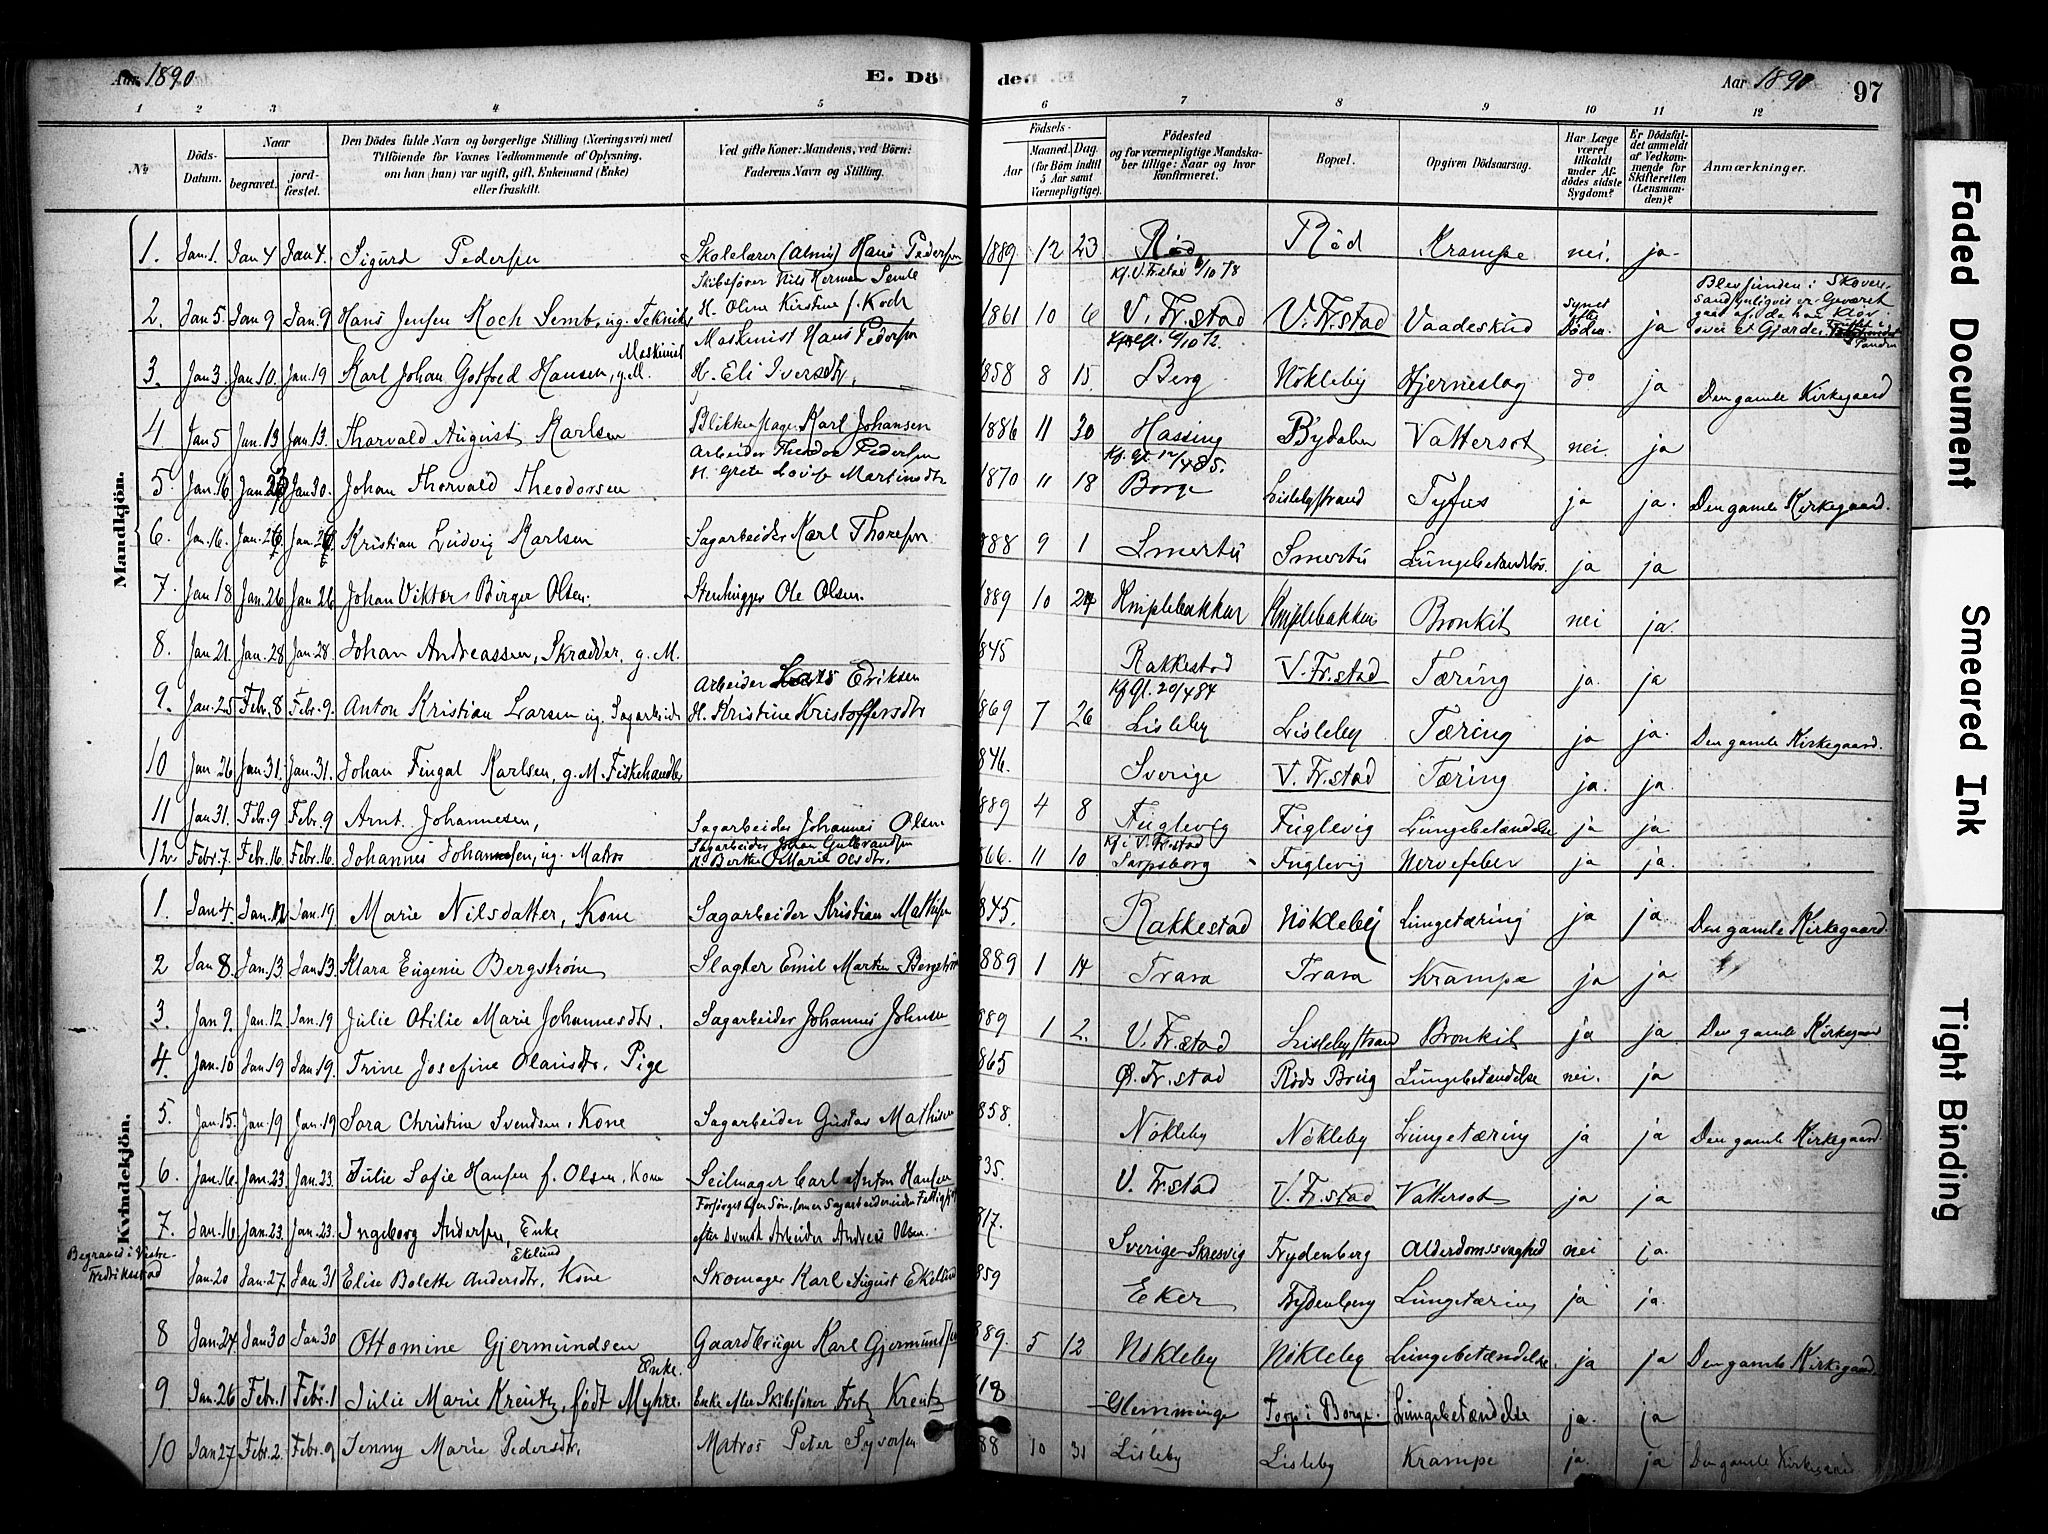 Aar 1890 E. Dö den Aar 1890 97
1 2 3 4 5 6 7 8 9 10 11 12
No
Döds-Datum.
Naar
begravet.
jord-fæstet.
Den Dödes fulde Navn og borgerlige Stilling (Næringsvei) med
Tilföiende for Voxnes Vedkommende af Oplysning,
om han (hun) var ugift, gift, Enkemand (Enke)
eller fraskilt.
Ved gifte Koner: Mandens, ved Börn:
Faderens Navn og Stilling.
Födsels-
Aar
Maaned. Dag.
(for Börn indtil
5 Aar samt
Værnepligtige).
Födested
og for værnepligtige Mandska-
ber tillige: Naar og hvor
konfirmeret.
Bopæl.
Opgiven Dödsaarsag.
Har Læge
været
tilkaldt
under Af-
dödes sidste
Sygdom?
Er Dödsfal-
det anmeldt
af Vedkom-
mende for
Skifteretten
(Lensman-
den)?
Anmærkninger.
Mandkjön.
1. Jan. 1. Jan 4 Jan 4. Sigurd Pedersen Skolelærer (Almis) Hans Pedersen 1889 12 23 Rød Rød Krampe nei. ja
2. Jan 5. Jan 9 Jan. 9 Hans Jensen Koch Semb, ug. Tekniker Skibsfører Nils Herman Semb H. Oline Kirstine f. Koch 1861 10 6 V. Fr.stad V. Fr.stad Vaadeskud Synet efter Døden. ja
3. Jan 3. Jan 10. Jan. 19 Karl Johan Gotfred Hansen, g. M. Maskinist Maskinist Hans Pedersen H. Eli Iversdtr. 858 8 15. Berg Nökleby Hjerneslag do ja Den gamle Kirkegaard
4 Jan 5 Jan. 13 Jan 13. Thorvald August Karlsen Blikkenslager Karl Johansen 1886 11 30 Hassing Bydalen Vattersot nei. ja
5. Jan. 16 Jan. Jan 30. Johan Thorvald Theodorsen Arbeider Theodor Pedersen H. Grete Lovise Martinsdtr 1870 11 18 Borge Lislebystrand Tyfus ja ja. Den gamle Kirkegaard.
6. Jan. 16. Jan. 26 Jan. 26 Kristian Ludvig Karlsen Sagarbeider Karl Thoresen 888 9 1 Smertu Smertu Lungebetændelse. ja ja
7. Jan 18 Jan. 26 Jan 26 Johan Viktor Birger Olsen. Stenhugger Ole Olsen. 889 10 24 Kniplebakken Kniplebakken Bronkit nei ja.
8. Jan 21. Jan. 28 Jan. 28. Johan Andreassen, Skrædder, g. M. 845 Rakkestad V. Fr.stad Tæring ja. ja
9. Jan. 25 Febr. 8 Febr. 9. Anton Kristian Larsen ug. Sagarbeider Arbeider Lars Eriksen H. Kristine Kristoffersdtr 869 7 26 Kf Gl. 20/4 84 Lisleby Lisleby Tæring ja ja. Den gamle Kirkegaard.
10 Jan 26 Jan. 31. Jan. 31. Johan Fingal Karlsen, g. M. Fiskehandler 846. Sverige V. Fr.stad Tæring ja. ja.
11 Jan 31. Febr. 9 Febr. 9 Arnt Johannesen, Sagarbeider Johannes Olsen 889 4 8 Fuglevig Fuglevig Lungebetændelse ja ja
12 Febr. 7. Febr. 16. Febr. 16. Johannes Johansen, ug. Matros Sagarbeider Johan Gulbrandsen H. Berthe Marie Olsdtr. 866. 11 10 Kf i V. Fr.stad Sarpsborg Fuglevig Nervefeber ja ja.
Kvindekjön.
1. Jan 4. Jan. 12 Jan. 19 Marie Nilsdatter, Kone Sagarbeider Kristian Mathisen 845. Rakkestad Nökleby Lungetæring ja ja Den gamle Kirkegaard.
2 Jan 8. Jan. 13 Jan 13. Klara Eugenie Bergstrøm Slagter Emil Martin Bergstrøm 889 1 14 Trara Trara Krampe ja ja
3. Jan 9. Jan. 12 Jan. 19 Julie Otilie Marie Johannesdtr. Sagarbeider Johannes Johnsen 889 1 2. V. Fr.stad Lislebystrand Bronkit ja ja Den gamle Kirkegaard
4. Jan. 10 Jan 19 Jan. 19. Trine Josefine Olausdtr. Pige 865 Ø. Fr.stad Røds Brug Lungebetændelse nei. ja
5. Jan. 15. Jan. 19 Jan. 19 Sara Christine Svendsen, Kone Sagarbeider Gustav Mathisen 858. Nökleby Nökleby Lungetæring ja ja Den gamle Kirkegaard.
6. Jan. 16. Jan. 23. Jan. 23. Julie Sofie Hansen f. Olsen, Kone Seilmager Carl Anton Hansen 835. V. Fr.stad V. Fr.stad Vattersot ja ja
7. Jan. 16 Jan. 23. Jan. 23. Ingeborg Andersen, Enke efter svensk Arbeider Andreas Olsen. 817. Sverige Frydenberg Alderdomssvaghed nei ja.
Begravet i Vestre Fredrikstad Jan. 20 Jan. 27. Jan 31 Elise Bolette Andersdtr. Kone Eklund Skomager Karl August Ekelund 859 Eker Frydenberg Lungetæring ja ja.
8 Jan. 24. Jan 30 Jan. 30 Ottomine Gjermundsen Gaardbruger Karl Gjermundsen 889. 5 12 Nökleby Nökleby Lungebetændelse. ja ja Den gamle Kirkegaard
9 Jan. 26 Febr. 1 Febr. 1 Julie Marie Kreutz, født Myhre. Enke. Enke efter Skibsfører Fritz Kreutz 818 Glemminge Torp i Borge. Lungebetændelse ja. ja
10 Jan 27 Febr. 2. Febr. 9 Jenny Marie Pedersdtr. Matros Peter Syversen 88 10 31 Lisleby Lisleby Krampe ja. ja Den gamle Kirkegaard
Faded Document
Smeared Ink
Tight Binding